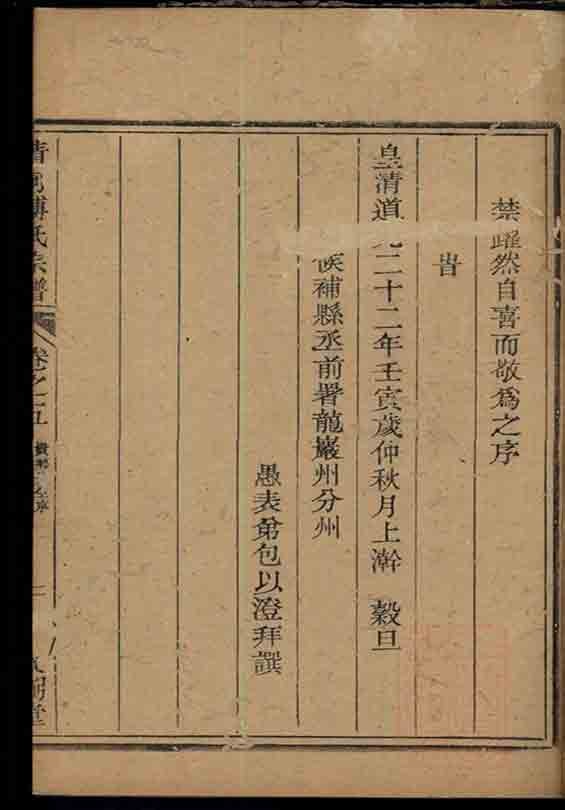 禁躍然自喜而敬爲之序
旹
皇清道光二十二年壬寅歲仲秋月上澣 榖旦
候補縣丞前署龍巖州分州
愚表弟包以澄拜譔
氏宗譜 卷之五